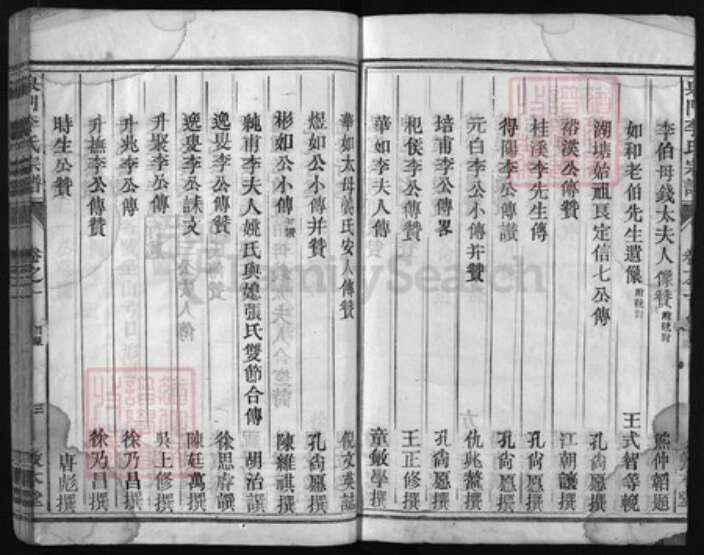 李伯母錢太夫人像贊附祝對 熊仲韜題
如和老伯先生遺像附祝對 王式智等輓
湖塘始祖良定信七公傳 孔尙愿撰
裕溪公傳贊 江朝讓撰
桂溪李先生傳 孔尙愿撰
得陽李公傳讃 孔尙愿撰
元白李公小傳并贊 仇兆鰲撰
培甫李公傳畧 孔尙愿撰
杞侯李公傳贊 王正修撰
華如李夫人傳 童敏學撰
華如太母氏安人傳贊 倪文英誌
煜如公小傳并贊 孔尙愿撰
彬如公小傳 陳維祺撰
純甫李夫人姚氏與媳張氏雙節合傳 胡治譔
逸叟李公傳贊 徐思齊譔
逸叟李公誄文 陳廷萬撰
升聚李公傳 吳上修撰
升兆李公傳 徐乃昌撰
升撫李公傳贊 徐乃昌撰
時生公贊 唐彪撰
李氏宗譜
卷之一
三
敦本堂
FamilySearch